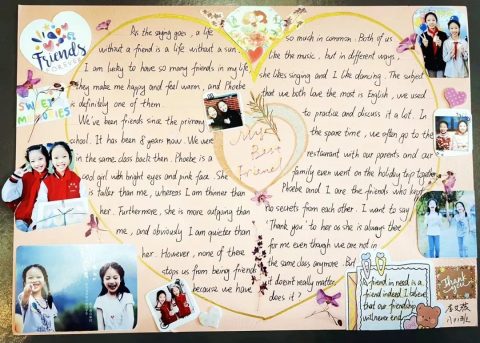 Friends
FOREVER
SWEET
MEMORIES
As the saying goes, a life
without a friend is a life without a sun.
I am lucky to have so many friends in my life,
they make me happy and feel warm, and Phoebe
is definitely one of them.
We've been friends since the primary
school. It has been 8 years now. We were
in the same class back then. Phoebe is a
cool girl with bright eyes and pink face. She
is taller than me, whereas I am thinner than
her. Furthermore, she is more outgoing than
me, and obviously I am quieter than
her. However, none of these
stops us from being friends
because we have
My
Best
Friend
so much in common. Both of us
like the music, but in different ways,
she likes singing and I like dancing. The subject
that we both love the most is English, we used
to practice and discuss it a lot. In
the spare time, we often go to the
restaurant with our parents and our
family even went on the holiday trip together.
Phoebe and I are the friends who keep
no secrets from each other. I want to say
Thank you to her as she is always there
for me even though we are not in
the same class anymore. But
it doesn't really matter,
does it?
A friend in need is a
friend indeed. I believe
that our friendship
will never end.
Thank you